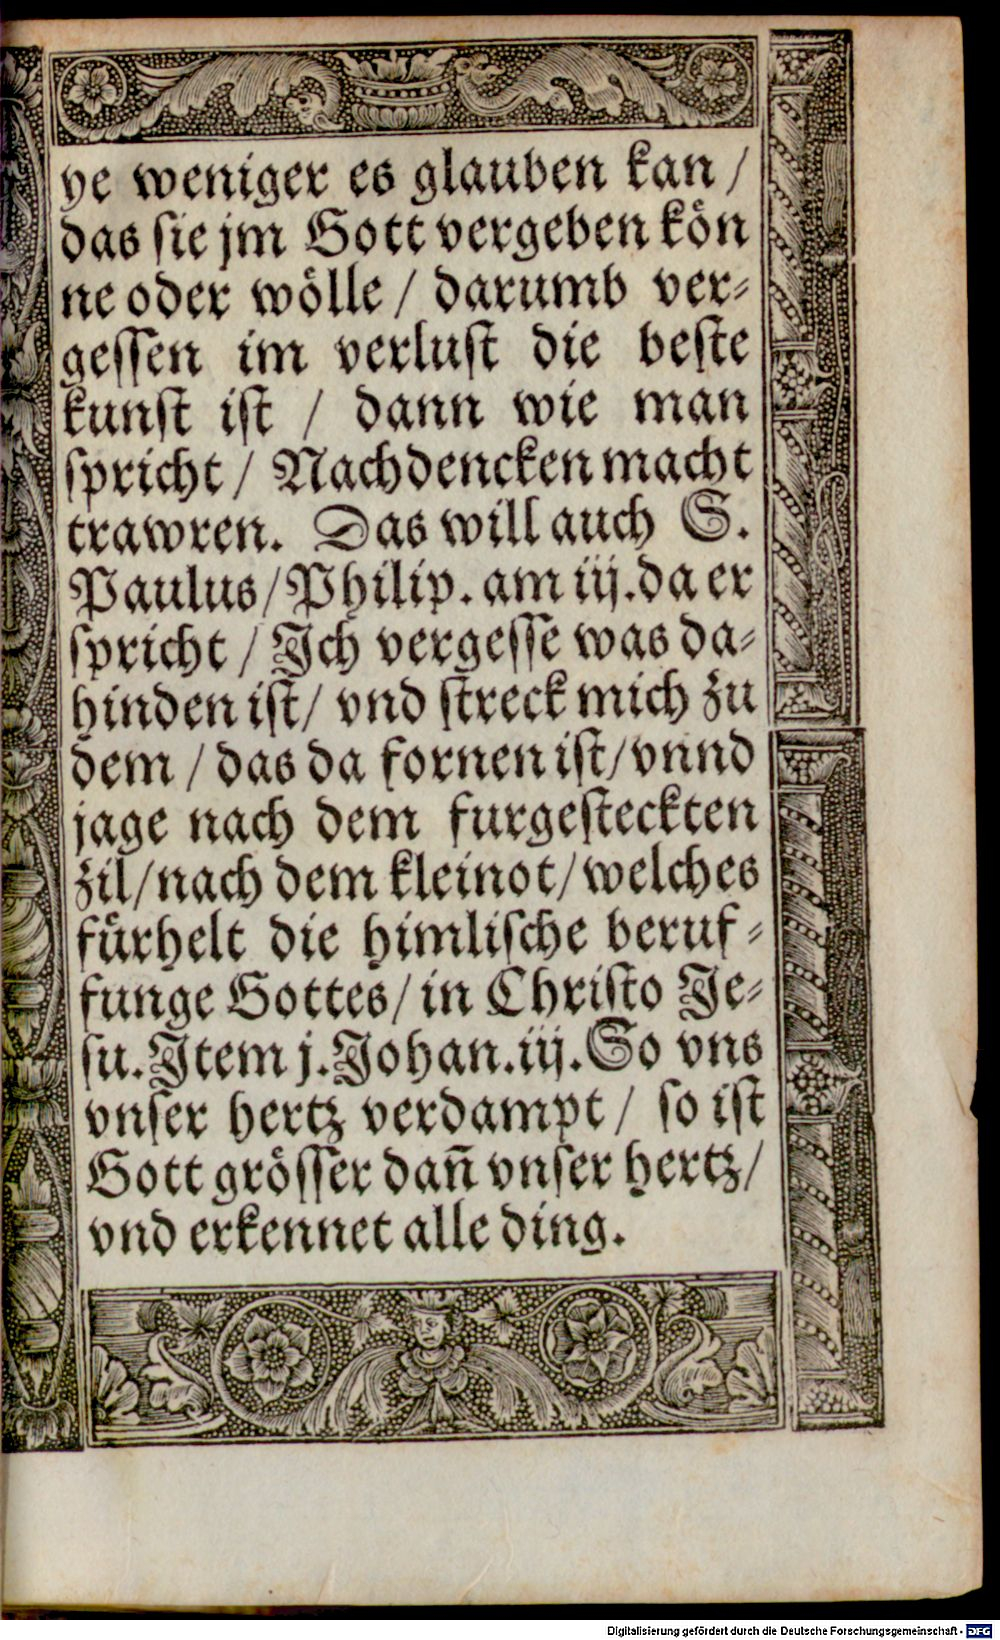 ye weniger es glauben kan /
das sie jm Gott vergeben kön
ne oder wölle / darumb ver-
gessen im verlust die beste
kunst ist / dann wie man
spricht / Nachdencken macht
trawren. Das will auch S.
Paulus / Philip. am iij. da er
spricht / Ich vergesse was da-
hinden ist / vnd streck mich zu
dem / das da fornen ist / vnnd
jage nach dem furgesteckten
zil / nach dem kleinot / welches
fürhelt die himlische beruf-
funge Gottes / in Christo Je-
su. Item j. Johan. iij. So vns
vnser hertz verdampt / so ist
Gott grösser dañ vnser hertz /
vnd erkennet alle ding.
Digitalisierung gefördert durch die Deutsche Forschungsgemeinschaft - DFG